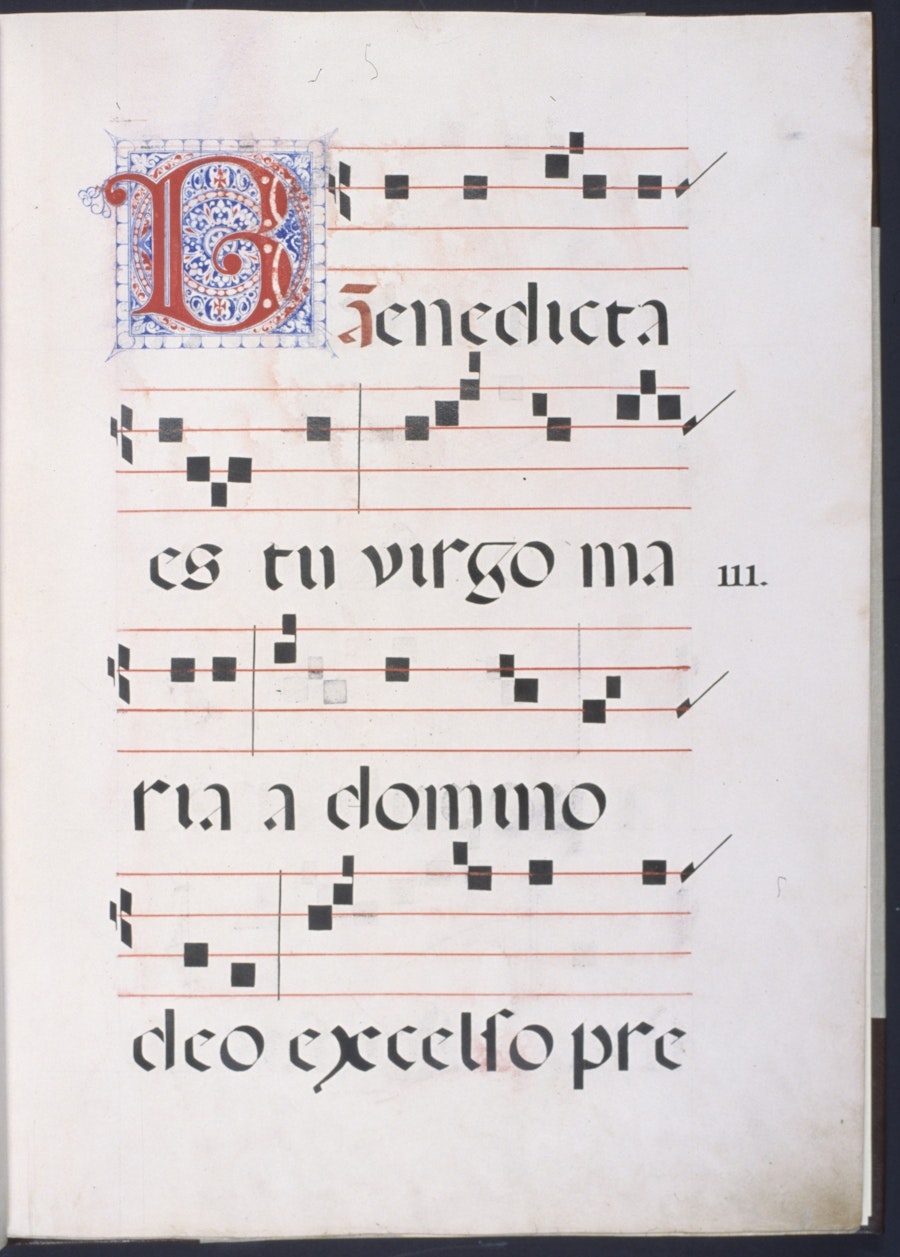 B ā enedicta
es tu virgo ma
111.
ria a domino
deo excelſo pre